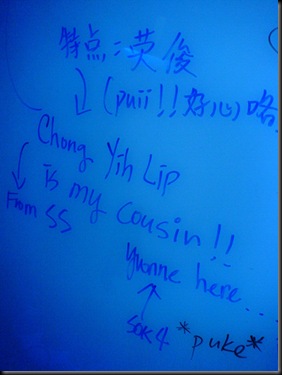 特点：英俊
(puii!! 好心) 咯
Chong Yih Lip
is my cousin!!
From SS
Yvonne here...
SOK4
*puke*